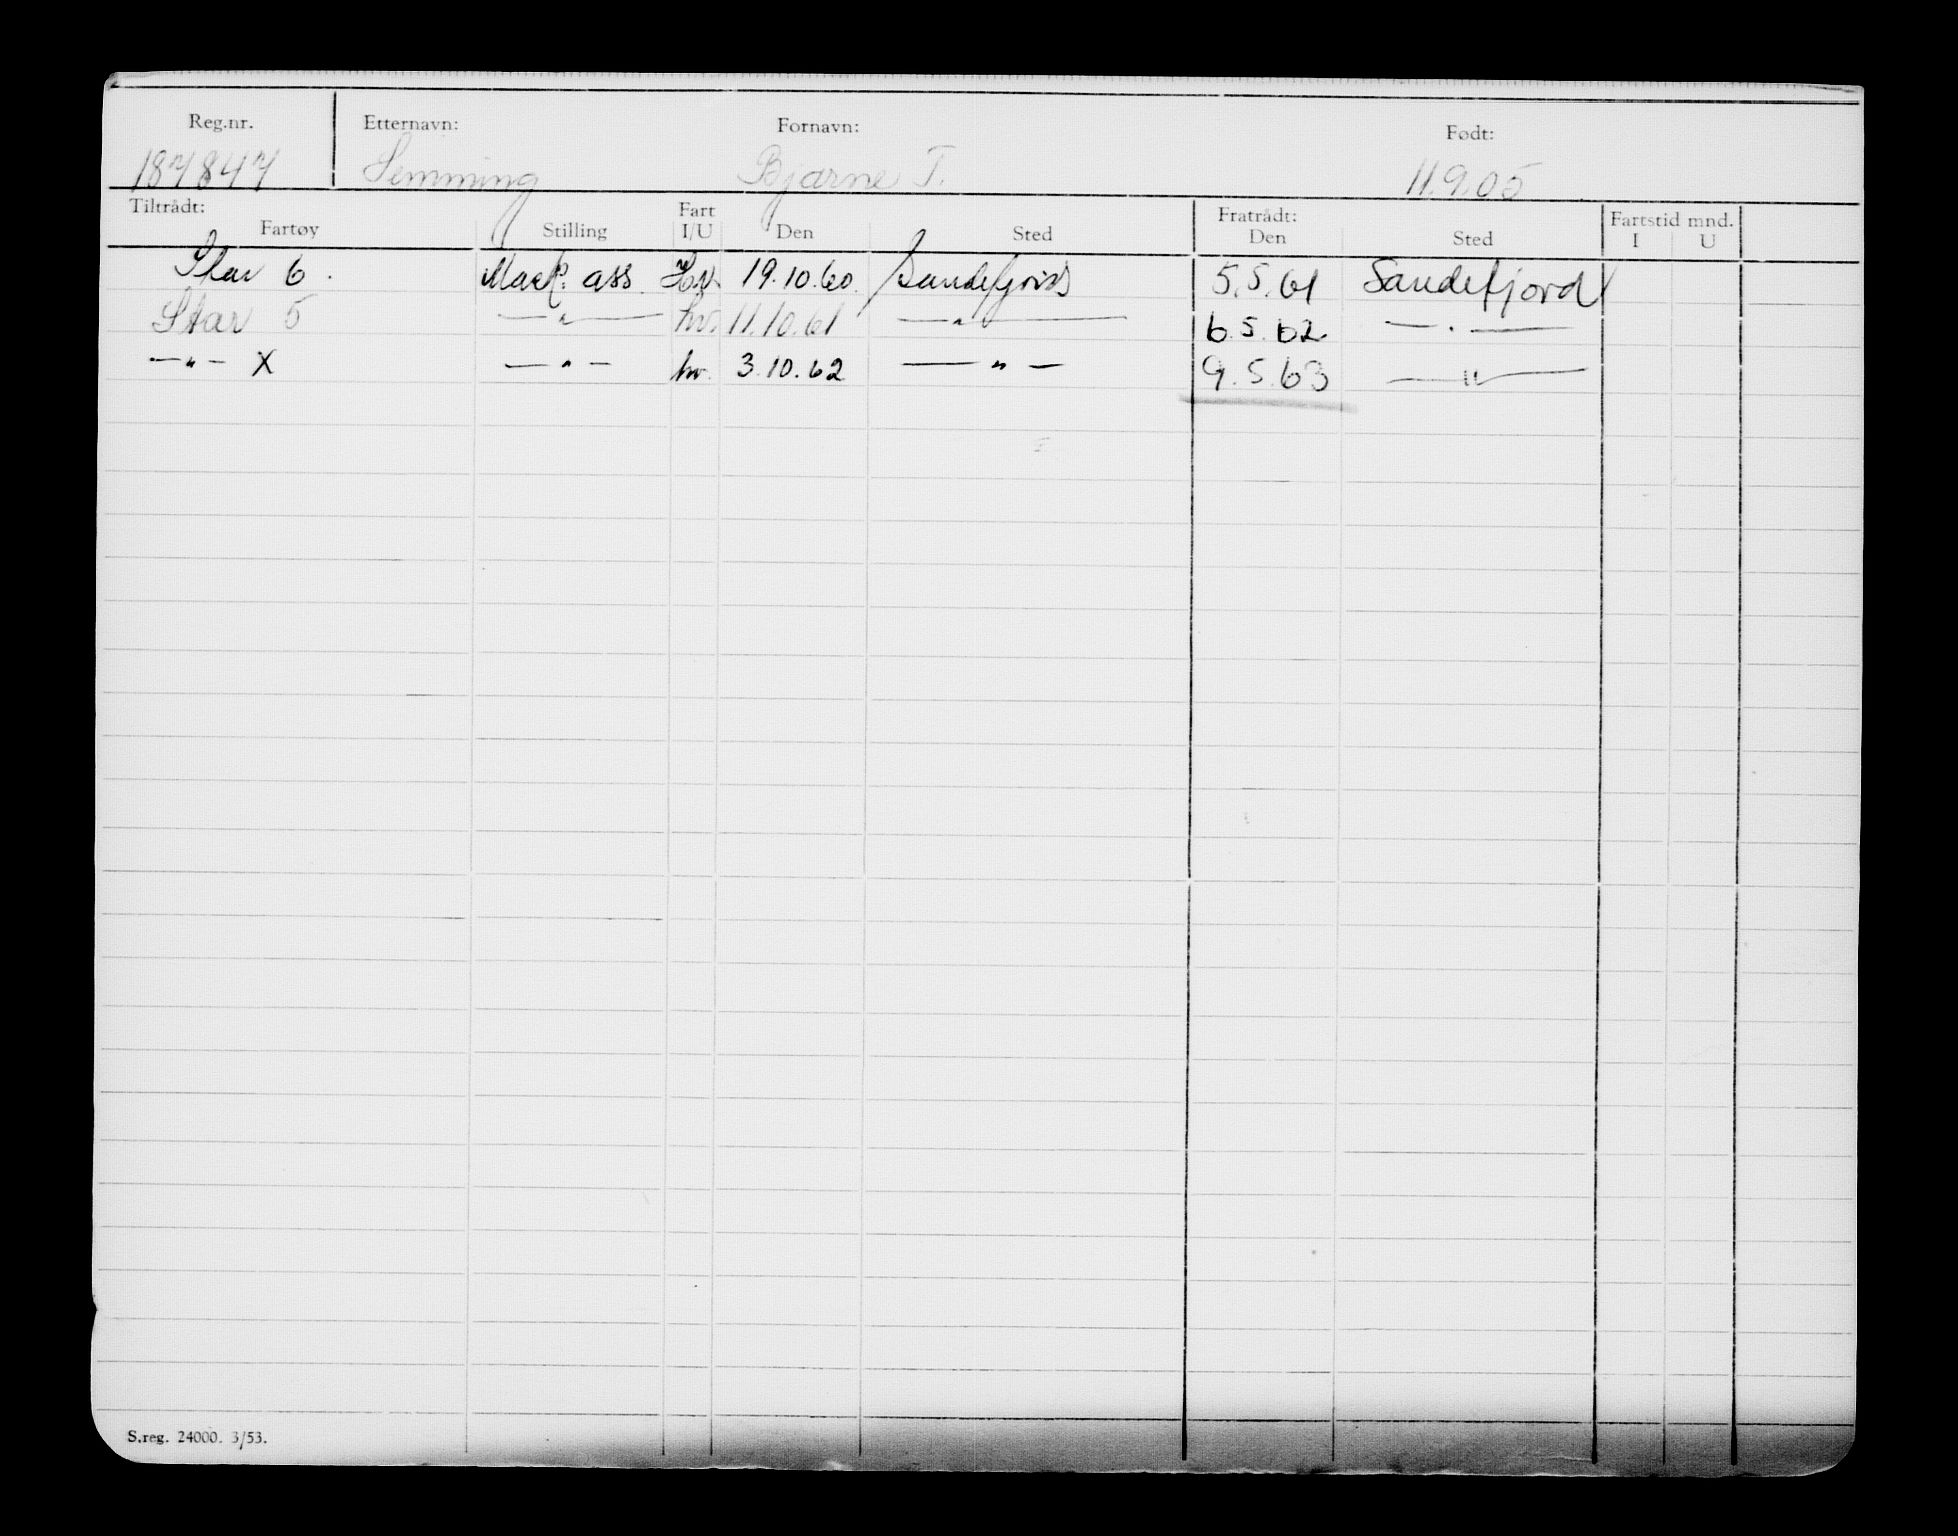 Reg.nr. Etternavn: Fornavn: Født:
187847 Semming Bjarne T. 11.9.05
Tiltrådt: Fart Fratrådt: Fartstid mnd.
Fartøy Stilling I/U Den Sted Den Sted I U
Star 6. Mask. ass. Hv. 19.10.60. Sandefjord 5.5.61 Sandefjord
Star 5 —"— hv. 11.10.61 —"— 6.5.62 —"—
—"— X —"— hv. 3.10.62 —"— 9.5.63 —"—
S.reg. 24000. 3/53.